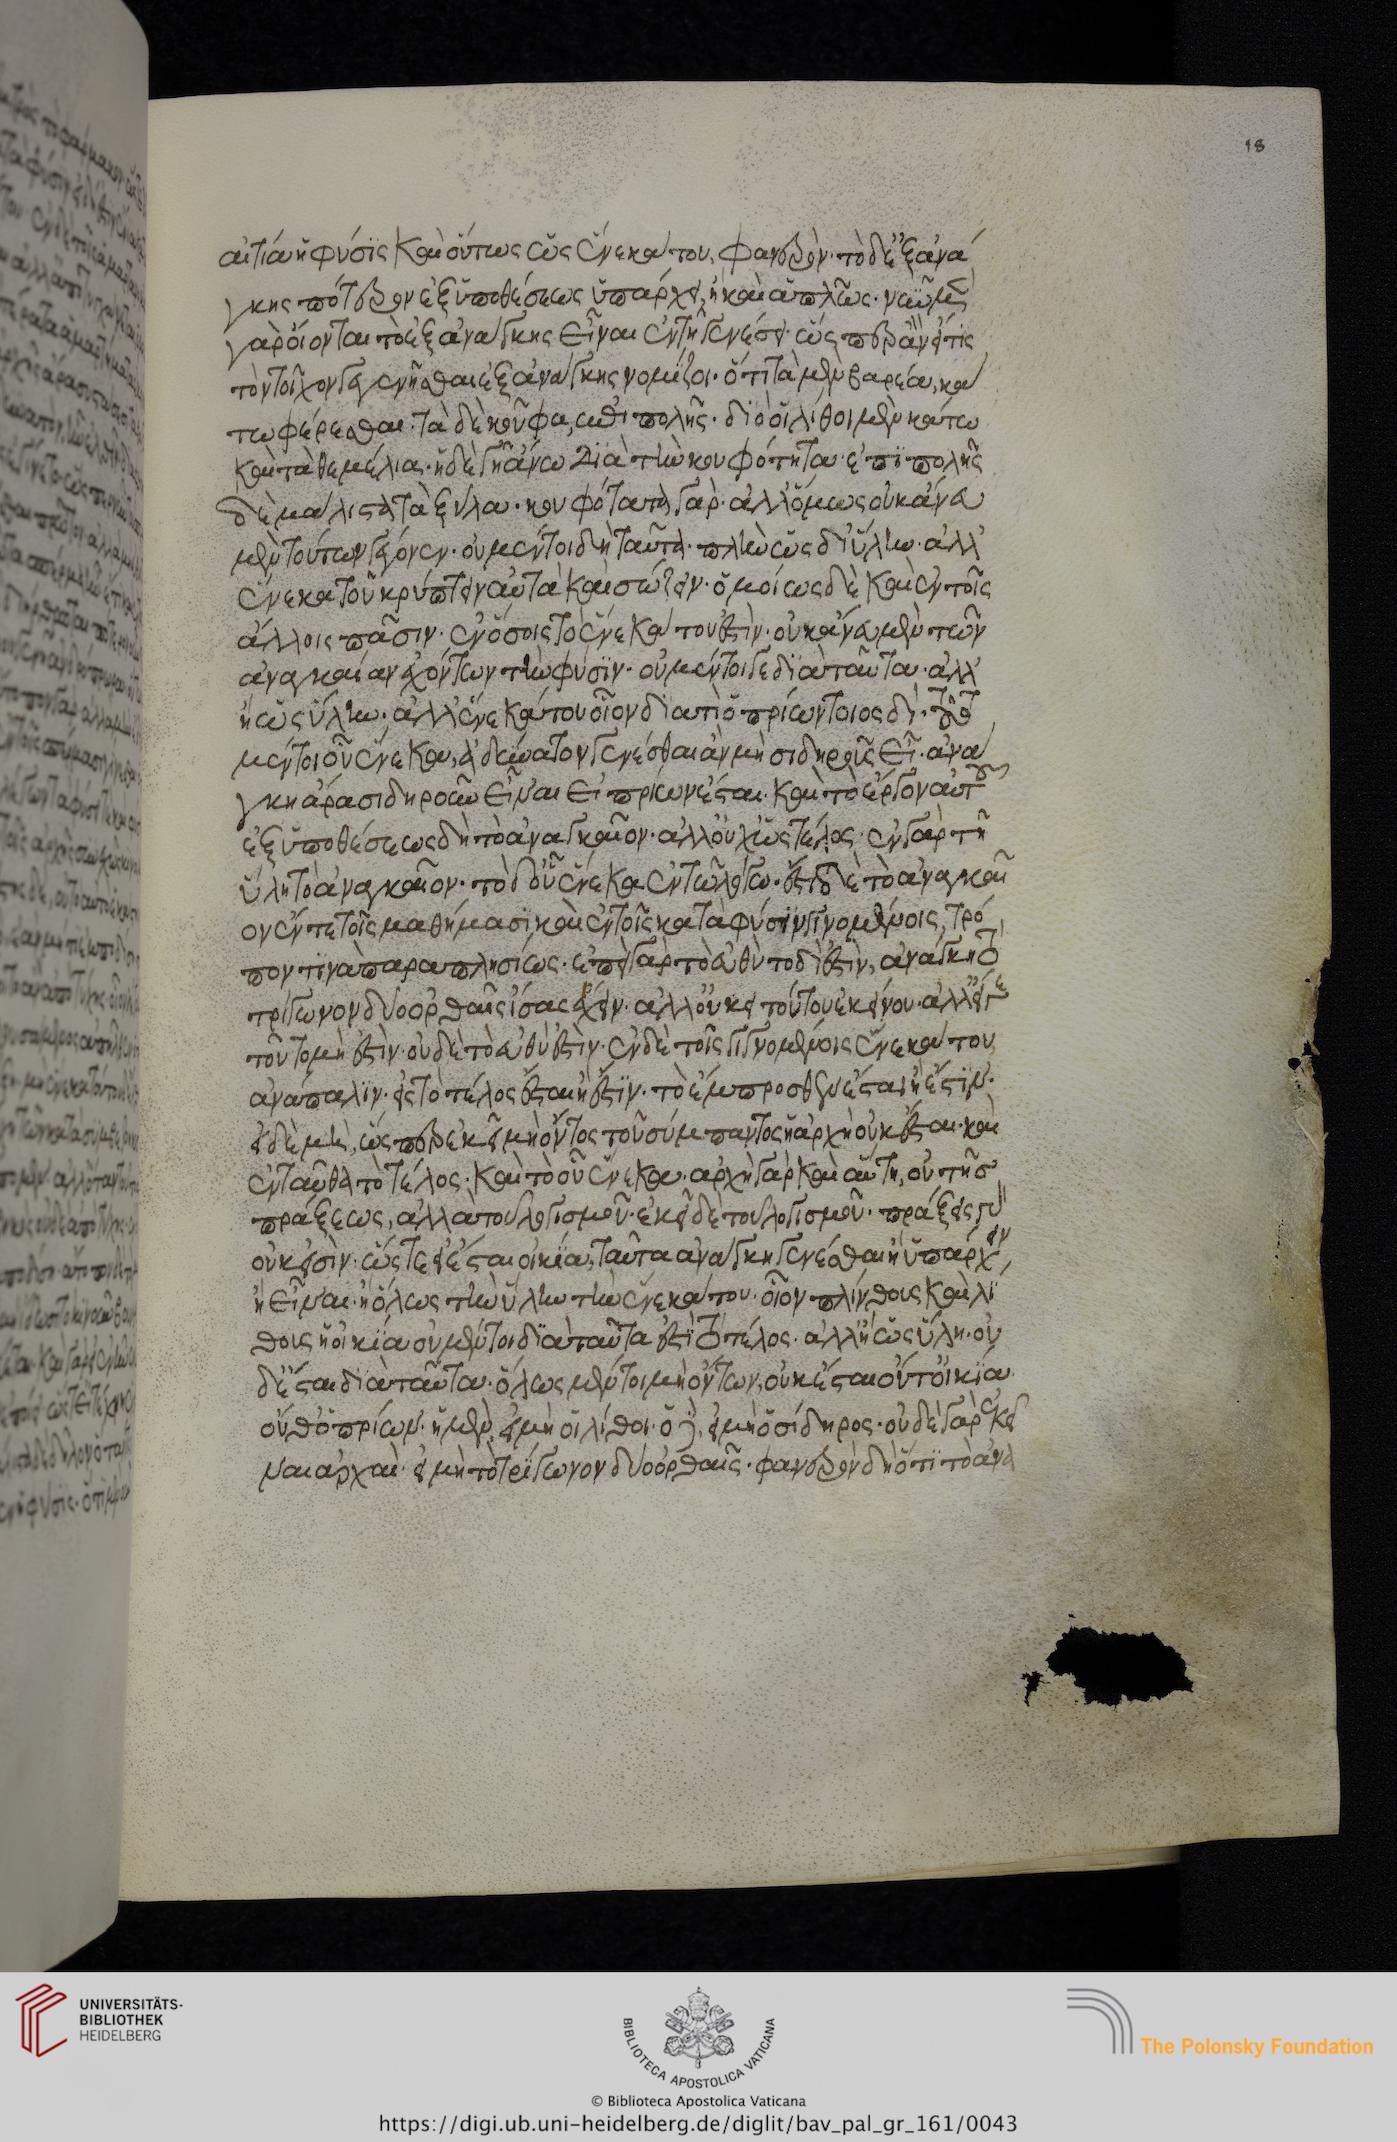 18
αἰτία ἡ φύσις καὶ οὕτως ὡς ἕνεκά του, φανερόν· τὸ δ' ἐξ ἀνά
γκης πότερον ἐξ ὑποθέσεως ὑπάρχει, ἢ καὶ ἁπλῶς· νῦν μὲν
γὰρ οἴονται τὸ ἐξ ἀνάγκης εἶναι ἐν τῇ γενέσει· ὥσπερ ἂν εἴ τις
τὸν τοῖχον γεγενῆσθαι ἐξ ἀνάγκης νομίζοι· ὅτι τὰ μὲν βαρέα, κά
τω φέρεσθαι· τὰ δὲ κοῦφα, ἐπιπολῆς· διὸ οἱ λίθοι μὲν κάτω
καὶ τὰ θεμέλια· ἡ δὲ γῆ ἄνω διὰ τὴν κουφότητα· ἐπιπολῆς
δὲ μάλιστα τὰ ξύλα· κουφότατα γάρ· ἀλλ' ὅμως οὐκ ἄνευ
μὲν τούτων γέγονεν· οὐ μέντοι διὰ ταῦτα· πλὴν ὡς δι' ὕλην· ἀλλ'
ἕνεκα τοῦ κρύπτειν αὐτὰ καὶ σώζειν· ὁμοίως δὲ καὶ ἐν τοῖς
ἄλλοις πᾶσιν· ἐν ὅσοις τὸ ἕνεκά του ἐστίν· οὐκ ἄνευ μὲν τῶν
ἀναγκαίαν ἐχόντων τὴν φύσιν· οὐ μέντοι γε διὰ ταῦτα· ἀλλ'
ἢ ὡς ὕλην· ἀλλ' ἕνεκά του οἷον διατί ὁ πρίων τοιοσδί·
μέντοι οὗ ἕνεκα, ἀδύνατον γενέσθαι ἂν μὴ σιδηροῦς εἴη· ἀνά
γκη ἄρα σιδηροῦν εἶναι εἰ πρίων ἔσται· καὶ τὸ ἔργον αὐτοῦ
ἐξ ὑποθέσεως δὴ τὸ ἀναγκαῖον· ἀλλ' οὐχ ὡς τέλος· ἐν γὰρ τῇ
ὕλῃ τὸ ἀναγκαῖον· τὸ δ' οὗ ἕνεκα ἐν τῷ λόγῳ· ἔστι δὲ τὸ ἀναγκαῖ
ον ἔν τε τοῖς μαθήμασι, καὶ ἐν τοῖς κατὰ φύσιν γινομένοις, τρό
πον τινὰ παραπλησίως· ἐπεὶ γὰρ τὸ εὐθὺ τοδί ἐστιν, ἀνάγκη τὸ
τρίγωνον δυο ὀρθαῖς ἴσας ἔχειν· ἀλλ' οὐκ εἰ τοῦτο ἐκείνου· ἀλλ' εἴγε
τοῦτο μὴ ἔστιν· οὐδὲ τὸ εὐθύ ἐστιν· ἐν δὲ τοῖς γιγνομένοις ἕνεκά του,
ἀνάπαλιν· εἰ τὸ τέλος ἔσται ἢ ἔστιν· τὸ ἔμπροσθεν ἔσται ἢ ἔστιν·
εἰ δὲ μὴ, ὥσπερ ἐκεῖ μὴ ὄντος τοῦ συμπαντος ἡ ἀρχὴ οὐκ ἔσται· καὶ
ἐνταῦθα τὸ τέλος· καὶ τὸ οὗ ἕνεκα· ἀρχὴ γὰρ καὶ αὕτη, οὐ τῆς
πράξεως, ἀλλὰ τοῦ λογισμοῦ· ἐκεῖ δὲ τοῦ λογισμοῦ· πράξεις γὰρ
οὐκ εἰσίν· ὥστε εἰ ἔσται οἰκία, ταῦτα ἀνάγκη γενέσθαι ἢ ὑπάρχειν,
ἢ εἶναι· ἢ ὅλως τὴν ὕλην τὴν ἕνεκά του· οἷον πλίνθοις καὶ λί
θοις ἡ οἰκία οὐ μέντοι διὰ ταῦτα ἐστὶ τὸ τέλος· ἀλλ' ἢ ὡς ὕλη· οὐ
δ' ἔσται διὰ ταῦτα· ὅλως μέντοι μὴ ὄντων, οὐκ ἔσται οὔτ' οἰκία
οὔθ' ὁ πρίων· ἡ μὲν, εἰ μὴ οἱ λίθοι· ὁ δὲ, εἰ μὴ ὁ σίδηρος· οὐδὲ γὰρ ἐκεῖ
ναι ἀρχαί· εἰ μὴ τὸ τρίγωνον δυο ὀρθαῖς· φανερὸν δὴ ὅτι τὸ ἀνα
UNIVERSITÄTS-
BIBLIOTHEK
HEIDELBERG
BIBLIOTECA APOSTOLICA VATICANA
The Polonsky Foundation
© Biblioteca Apostolica Vaticana
https://digi.ub.uni-heidelberg.de/diglit/bav_pal_gr_161/0043